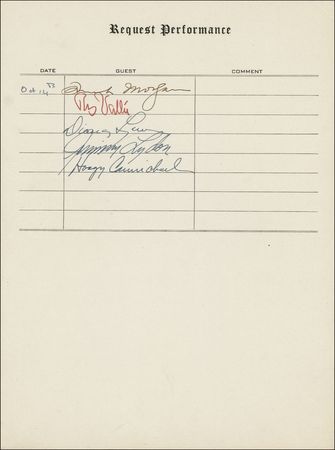 Request Performance
DATE GUEST COMMENT
Oct 14 Morgan
Rudy Vallée
Jimmy Lydon
Hoagy Carmichael